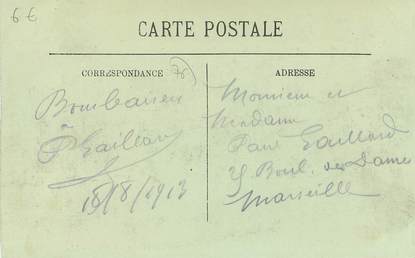 6€
CARTE POSTALE
CORRESPONDANCE
ADRESSE
Gaillard
18/8/1913
Monsieur et
Madame
Paul Gaillard
Boul. des Dames
Marseille